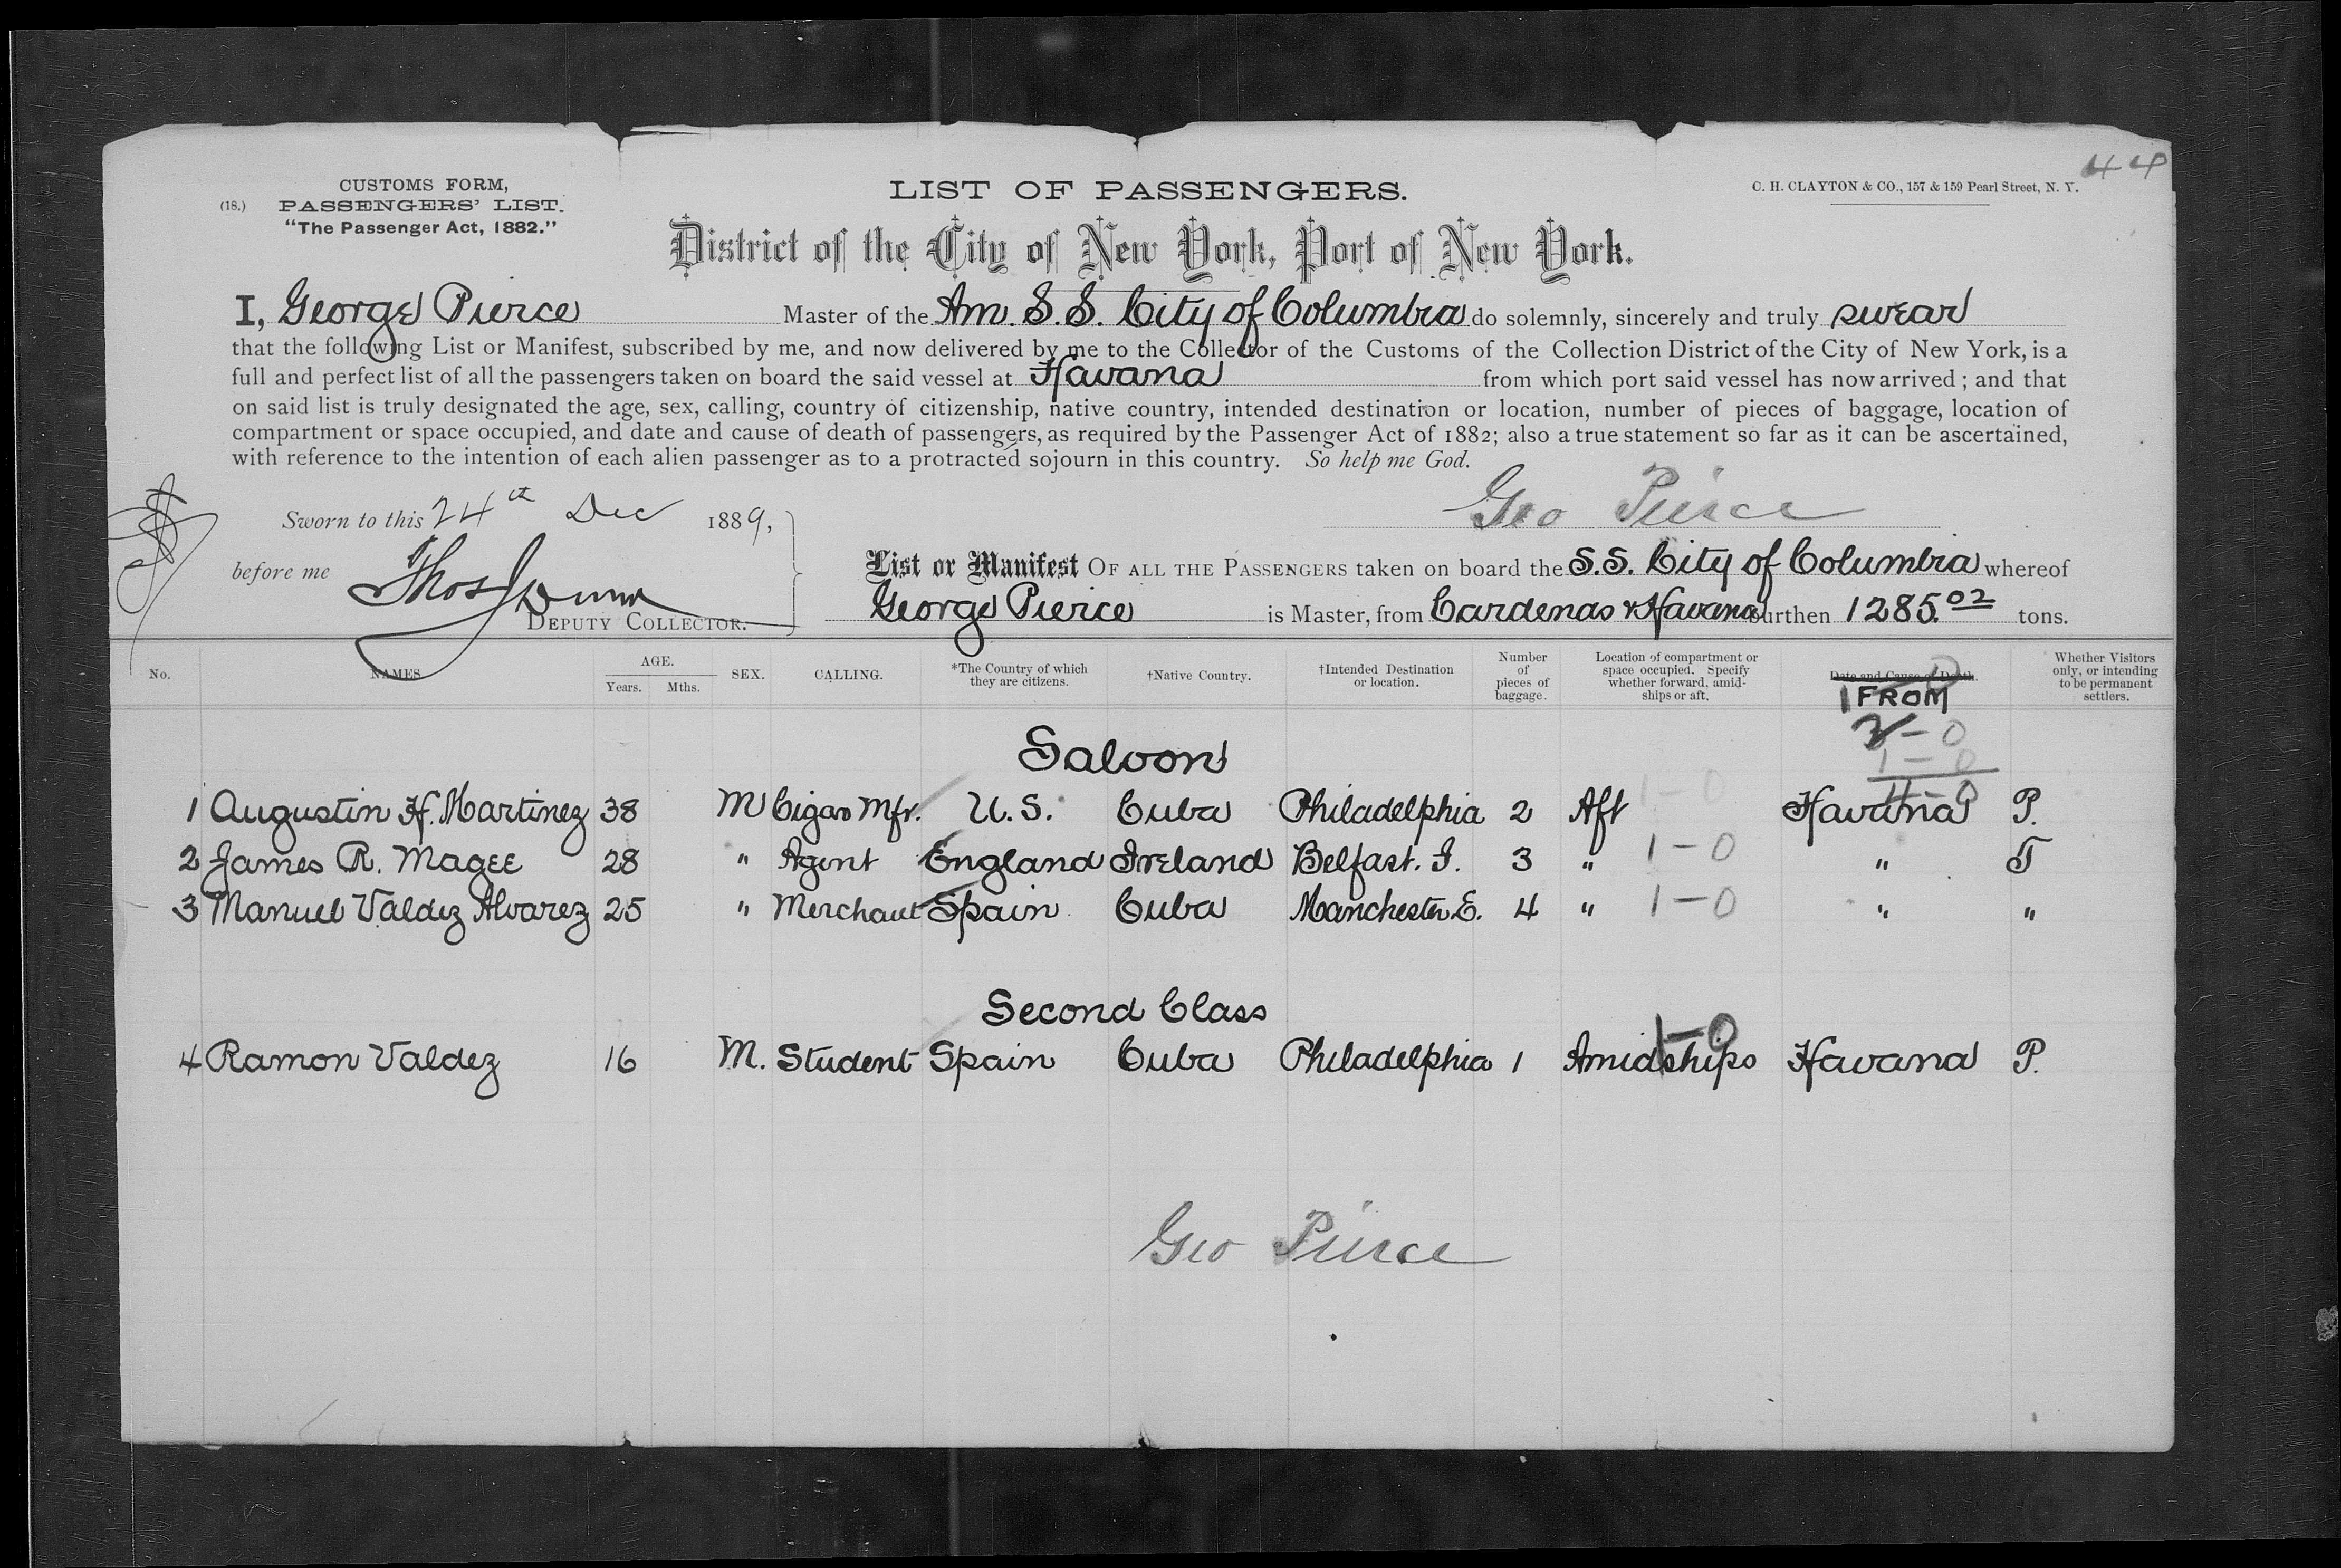 44
CUSTOMS FORM,
(18.) PASSENGERS' LIST.
"The Passenger Act, 1882."
LIST OF PASSENGERS.
C. H. CLAYTON & CO., 157 & 159 Pearl Street, N. Y.
District of the City of New York, Port of New York.
I, George Pierce Master of the Am. S.S. City of Columbia do solemnly, sincerely and truly swear
that the following List or Manifest, subscribed by me, and now delivered by me to the Collector of the Customs of the Collection District of the City of New York, is a
full and perfect list of all the passengers taken on board the said vessel at Havana from which port said vessel has now arrived; and that
on said list is truly designated the age, sex, calling, country of citizenship, native country, intended destination or location, number of pieces of baggage, location of
compartment or space occupied, and date and cause of death of passengers, as required by the Passenger Act of 1882; also a true statement so far as it can be ascertained,
with reference to the intention of each alien passenger as to a protracted sojourn in this country. So help me God.
Sworn to this 24th Dec 1889,
Geo Pierce
before me Thos J Dunn
DEPUTY COLLECTOR.
List or Manifest OF ALL THE PASSENGERS taken on board the S.S. City of Columbia whereof
George Pierce is Master, from Cardenas & Havana burthen 1285.02 tons.
No. NAMES AGE. Years. Mths. SEX. CALLING. *The Country of which they are citizens. †Native Country. †Intended Destination or location. Number of pieces of baggage. Location of compartment or space occupied. Specify whether forward, amidships or aft. Date and Cause of Death. FROM Whether Visitors only, or intending to be permanent settlers.
Saloon
2-0
1-0
4-0
1 Augustin H. Martinez 38 M Cigar Mfr. U.S. Cuba Philadelphia 2 Aft 1-0 Havana P.
2 James R. Magee 28 " Agent England Ireland Belfast. I. 3 " 1-0 " T
3 Manuel Valdez Alvarez 25 " Merchant Spain Cuba Manchester E. 4 " 1-0 " "
Second Class
4 Ramon Valdez 16 M. Student Spain Cuba Philadelphia 1 Amidships 1-0 Havana P.
Geo Pierce